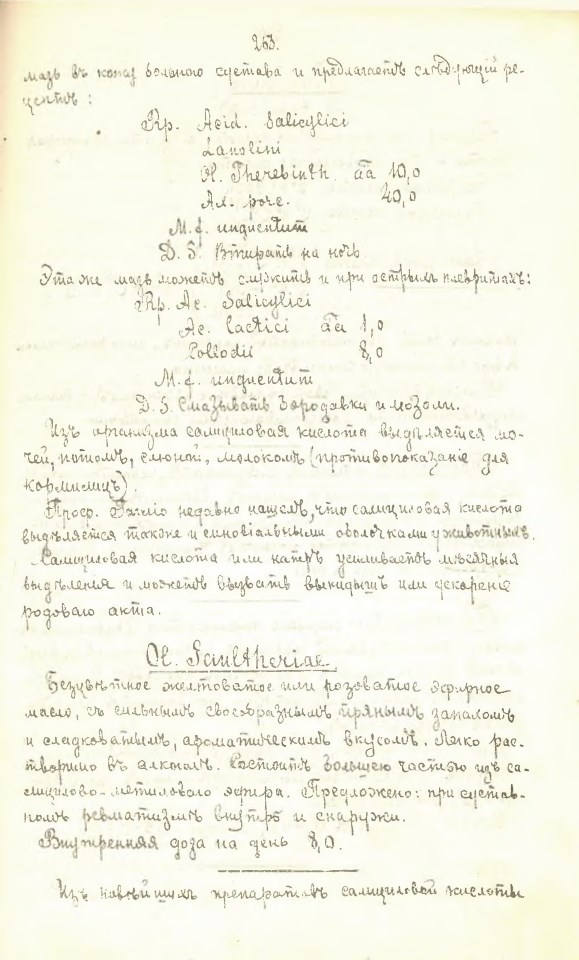 263.
мазь въ кожу больного сустава и предлагаетъ слѣдующій ре-
цептъ:
Rp. Acid. Salicylici
Lanolini
Ol. Therebinth. āā 10,0
40,0
M. f. unguentum
D. S. Втирать на ночь
Эта же мазь можетъ служить и при острыхъ плевритахъ:
Rp. Ac. Salicylici
Ac. lactici āā 1,0
Collodii 8,0
M. f. unguentum
D. S. Смазывать бородавки и мозоли.
Изъ организма салициловая кислота выдѣляется мо-
чей, потомъ, слюной, молокомъ (противопоказаніе для
кормилицъ).
Проф. недавно нашелъ, что салициловая кислота
выдѣляется также и синовіальными оболочками у животныхъ.
Салициловая кислота или натръ усиливаетъ мѣсячныя
выдѣленія и можетъ вызвать выкидышъ или ускореніе
родоваго акта.
Ol. Gaultheriae.
Безцвѣтное желтоватое или розоватое эфирное
масло, съ сильнымъ своеобразнымъ прянымъ запахомъ
и сладковатымъ, ароматическимъ вкусомъ. Легко рас-
творимо въ алкоголѣ. Состоитъ большею частью изъ са-
лицилово-метиловаго эфира. Предложено: при сустав-
номъ ревматизмѣ внутрь и снаружи.
Внутренняя доза на день 8,0.
Изъ новѣйшихъ препаратовъ салициловой кислоты